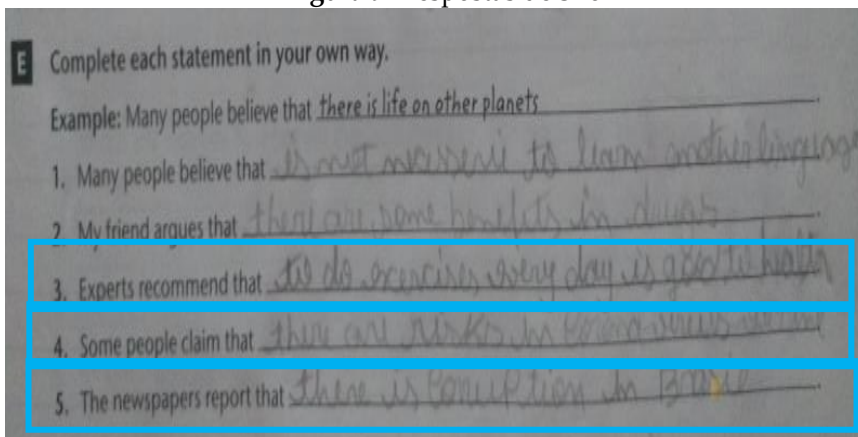 E Complete each statement in your own way.
Example: Many people believe that there is life on other planets.
1. Many people believe that is not to learn another
2. My friend argues that there are some benefits in drugs.
3. Experts recommend that to do exercises every day is good to health
4. Some people claim that there are risks in
5. The newspapers report that there is in.